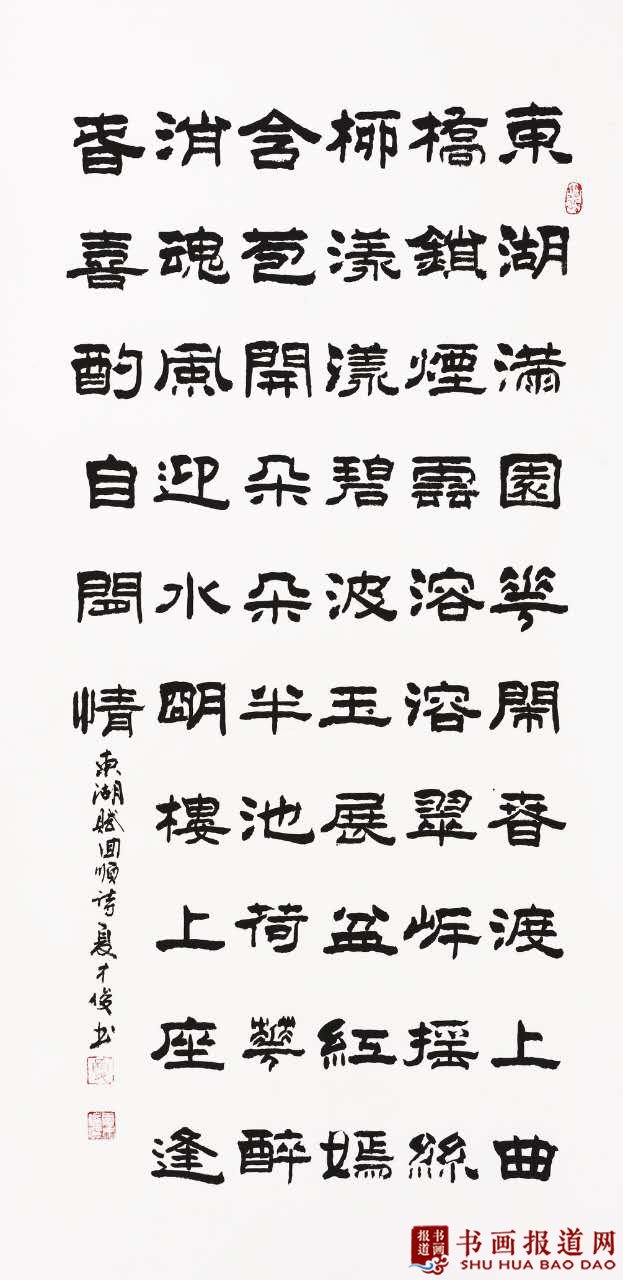 東湖滿園華閑春渡上曲
橋鎖煙雲溶溶翠岸搖絲
柳漾漾碧波玉展盆紅嫣
含苞開朵朵半池荷華醉
消魂風迎水明樓上座逢
春喜酌自閒情
東湖賦回順詩夏才俊书
报道
书画
书画报道网
SHU HUA BAO DAO